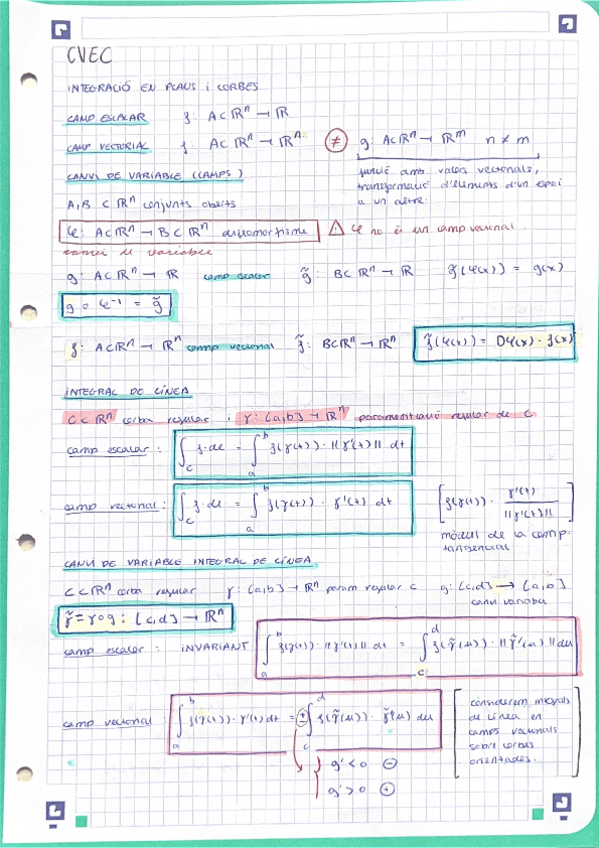 CVEC
INTEGRACIÓ EN PLANS i CORBES
CAMP ESCALAR f: A⊂ℝⁿ → ℝ
CAMP VECTORIAL f: A⊂ℝⁿ → ℝⁿ ≠ g: A⊂ℝⁿ → ℝᵐ n ≠ m
funció amb valors vectorials,
transformació d'elements d'un espai
a un altre.
CANVI DE VARIABLE (CAMPS)
A,B ⊂ ℝⁿ conjunts oberts
φ: A⊂ℝⁿ → B⊂ℝⁿ difeomorfisme ⚠ φ no és un camp vectorial.
canvi de variable
g: A⊂ℝⁿ → ℝ camp escalar g̃: B⊂ℝⁿ → ℝ g̃(φ(x)) = g(x)
g∘φ⁻¹ = g̃
f: A⊂ℝⁿ → ℝⁿ camp vectorial f̃: B⊂ℝⁿ → ℝⁿ f̃(φ(x)) = Dφ(x)·f(x)
INTEGRAL DE LÍNEA
C⊂ℝⁿ corba regular, γ: [a,b] → ℝⁿ parametrització regular de C
camp escalar: ∫_C f·dl = ∫_a^b f(γ(t))·||γ'(t)|| dt
camp vectorial: ∫_C f·dl = ∫_a^b f(γ(t))·γ'(t) dt [f(γ(t))·γ'(t)/||γ'(t)||]
mòdul de la comp.
tangencial
CANVI DE VARIABLE INTEGRAL DE LÍNEA
C⊂ℝⁿ corba regular γ: [a,b] → ℝⁿ param regular C g: [c,d] → [a,b]
canvi variable
γ̃ = γ∘g: [c,d] → ℝⁿ
camp escalar: INVARIANT ∫_a^b f(γ(t))·||γ'(t)|| dt = ∫_c^d f(γ̃(u))·||γ̃'(u)|| du
camp vectorial: ∫_a^b f(γ(t))·γ'(t) dt = ± ∫_c^d f(γ̃(u))·γ̃'(u) du
g' < 0 ⊖
g' > 0 ⊕
[considerem integrals
de línea en
camps vectorials
sobre corbes
orientades.]